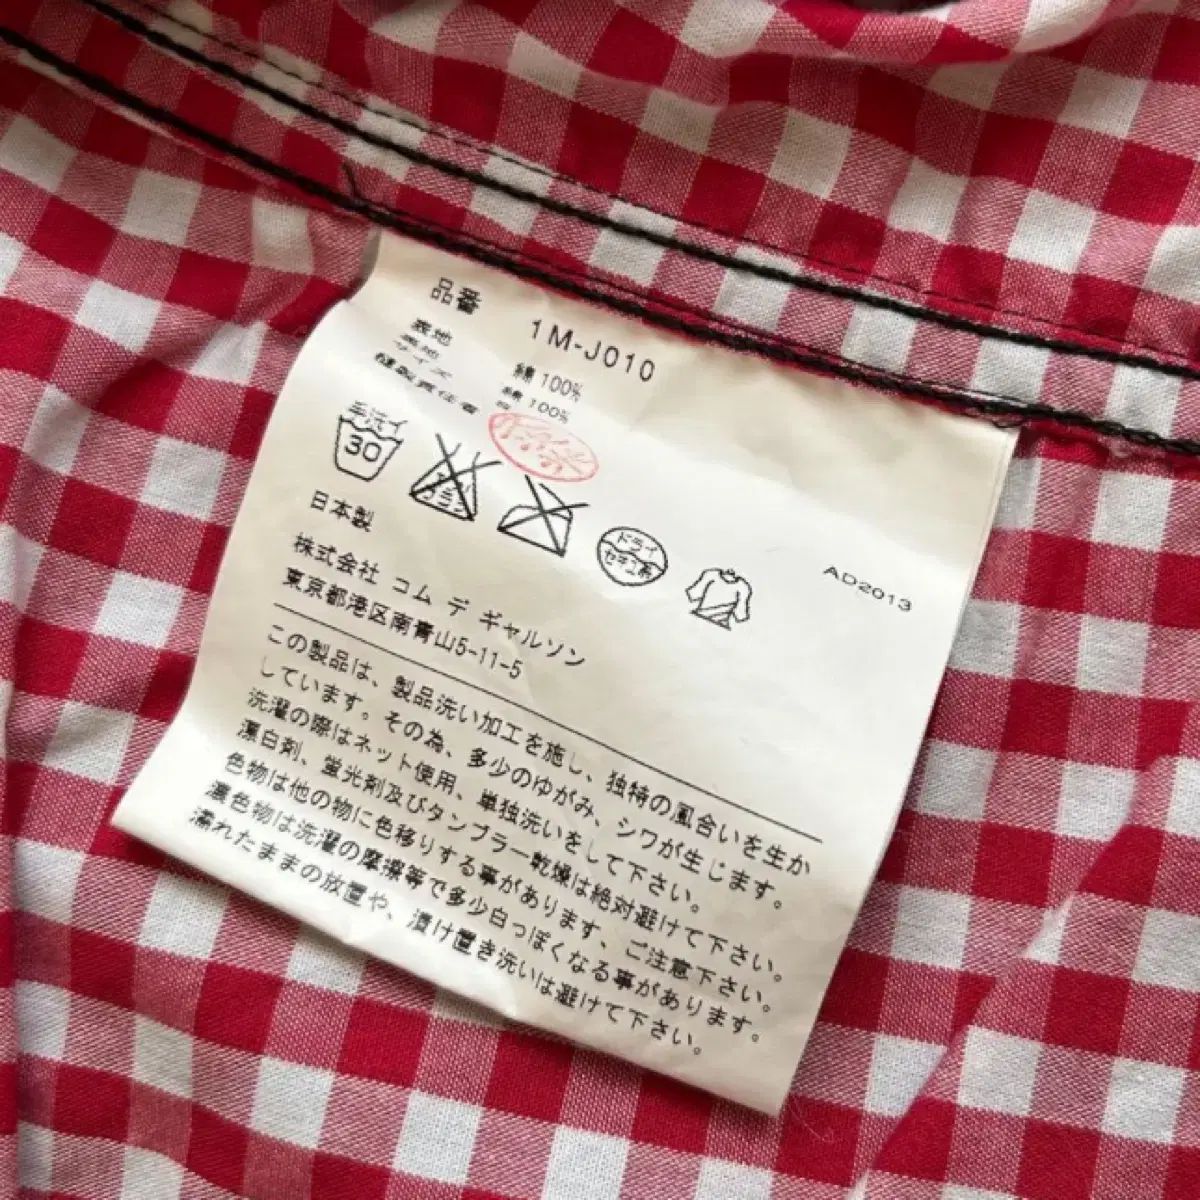 品番 1M-J010
表地 綿 100%
裏地 綿 100%
サイズ
縫製責任者
手洗イ
30
エンソ
サラシ
ドライ
セキユ系
AD2013
日本製
株式会社 コム デ ギャルソン
東京都港区南青山5-11-5
この製品は、製品洗い加工を施し、独特の風合いを生か
しています。その為、多少のゆがみ、シワが生じます。
洗濯の際はネット使用、単独洗いをして下さい。
漂白剤、蛍光剤及びタンブラー乾燥は絶対避けて下さい。
色物は他の物に色移りする事があります、ご注意下さい。
濃色物は洗濯の摩擦等で多少白っぽくなる事があります。
濡れたままの放置や、漬け置き洗いは避けて下さい。